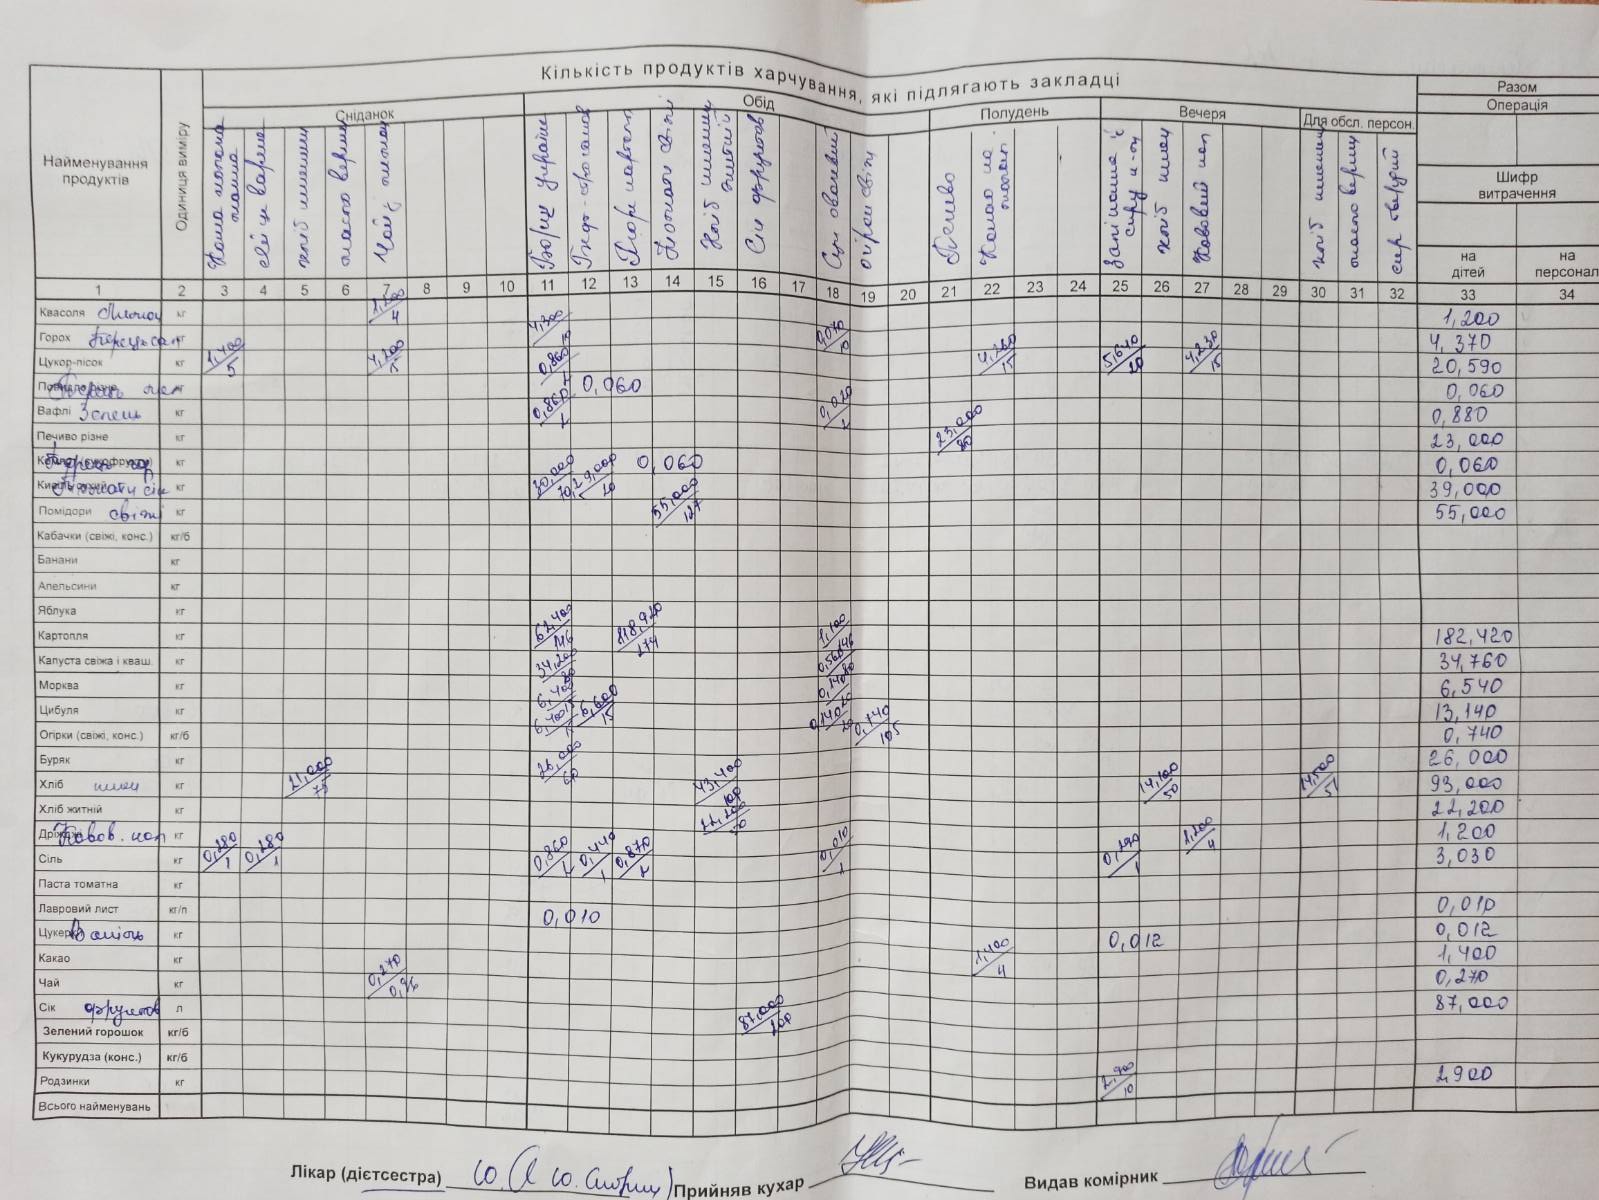 Кількість продуктів харчування, які підлягають закладці
Найменування продуктів
Одиниця виміру
Сніданок
Обід
Полудень
Вечеря
Для обсл. персон.
Разом
Операція
Шифр витрачення
на дітей
на персонал
хліб
масло
Чай з лимоном
Борщ україн
Сік фруктов
огірки свіжі
Печиво
Какао на
Запіканка із сиру
Кавовий нап
сир твердий
1 2 3 4 5 6 7 8 9 10 11 12 13 14 15 16 17 18 19 20 21 22 23 24 25 26 27 28 29 30 31 32 33 34
Квасоля Лимон кг 1,200/4 1,200
Горох кг 4,300/10 0,070/10 4,370
Цукор-пісок кг 1,400/5 4,200/15 0,860/2 4,260/15 5,640/20 4,230/15 20,590
кг 0,060 0,060
Вафлі Зелень кг 0,860/2 0,020/2 0,880
Печиво різне кг 23,000/80 23,000
кг 0,060 0,060
Томати сік кг 30,000/70 9,000/20 39,000
Помідори свіжі кг 55,000/127 55,000
Кабачки (свіжі, конс.) кг/б
Банани кг
Апельсини кг
Яблука кг
Картопля кг 62,400/146 118,920/274 1,100/146 182,420
Капуста свіжа і кваш. кг 34,200/80 0,560/80 34,760
Морква кг 6,400/15 0,140/20 6,540
Цибуля кг 6,400/15 6,600/15 0,140/20 13,140
Огірки (свіжі, конс.) кг/б 0,740/105 0,740
Буряк кг 26,000/60 26,000
Хліб пшен кг 21,000/75 43,400/100 14,100/50 14,500/51 93,000
Хліб житній кг 22,200/50 22,200
Кавов. нап кг 1,200/4 1,200
Сіль кг 0,280/1 0,280/1 0,860/2 0,440/1 0,870/2 0,010/2 0,290/1 3,030
Паста томатна кг
Лавровий лист кг/п 0,010 0,010
Цукер Ваніль кг 0,012 0,012
Какао кг 1,400/4 1,400
Чай кг 0,270/0,96 0,270
Сік фруктов л 87,000/200 87,000
Зелений горошок кг/б
Кукурудза (конс.) кг/б
Родзинки кг 2,900/10 2,900
Всього найменувань
Лікар (дієтсестра)
Прийняв кухар
Видав комірник